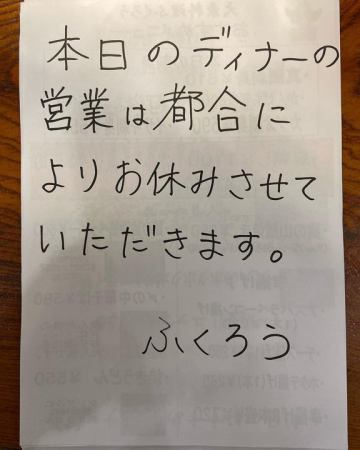 本日のディナーの
営業は都合に
よりお休みさせて
いただきます。
ふくろう